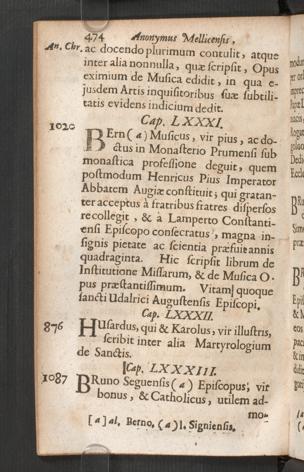 474 Anonymus Mellicensis,
An. Chr. ac docendo plurimum contulit, atque
inter alia nonnulla, quæ scripsit, Opus
eximium de Musica edidit, in qua e-
jusdem Artis inquisitoribus suæ subtili-
tatis evidens indicium dedit.
Cap. LXXXI.
1020 BErn (a) Musicus, vir pius, ac do-
ctus in Monasterio Prumensi sub
monastica professione deguit, quem
postmodum Henricus Pius Imperator
Abbatem Augiæ constituit; qui gratan-
ter acceptus à fratribus fratres dispersos
recollegit, & à Lamperto Constanti-
ensi Episcopo consecratus, magna in-
signis pietate ac scientia præfuit annis
quadraginta. Hic scripsit librum de
Institutione Missarum, & de Musica O-
pus præstantissimum. Vitam quoque
sancti Udalrici Augustensis Episcopi.
Cap. LXXXII.
876 HUsardus, qui & Karolus, vir illustris,
scribit inter alia Martyrologium
de Sanctis.
Cap. LXXXIII.
1087 BRuno Seguensis (a) Episcopus, vir
bonus, & Catholicus, utilem ad-
mo-
[a] al. Berno. (a) l. Signiensis.